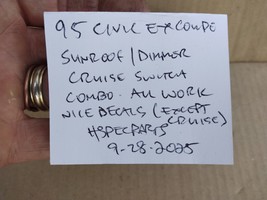 95 CIVIC EX COUPE
SUNROOF/DIMMER
CRUISE SWITCH
COMBO. ALL WORK
NICE DECALS (EXCEPT
CRUISE)
HSPECPARTS
9-28-2025